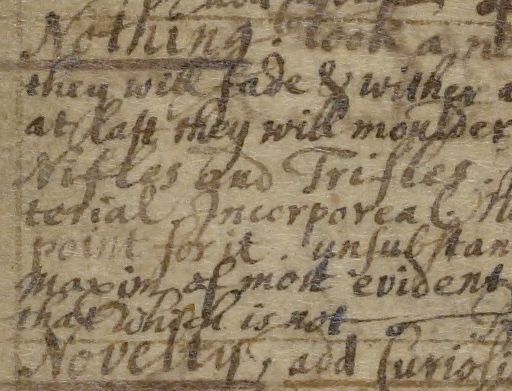 Nothing: look an
they will fade & wither a
at last they will moulder
Nifles and Trifles.
terial Incorporeal
point for it unsubstan
maxim of most evident
that which is not
Novelty, add Curiosi